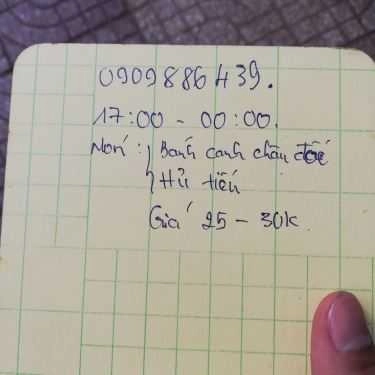 0909886439.
17:00 - 00:00.
Món : Bánh canh chân
Hủ tiếu
Giá 25 - 30K